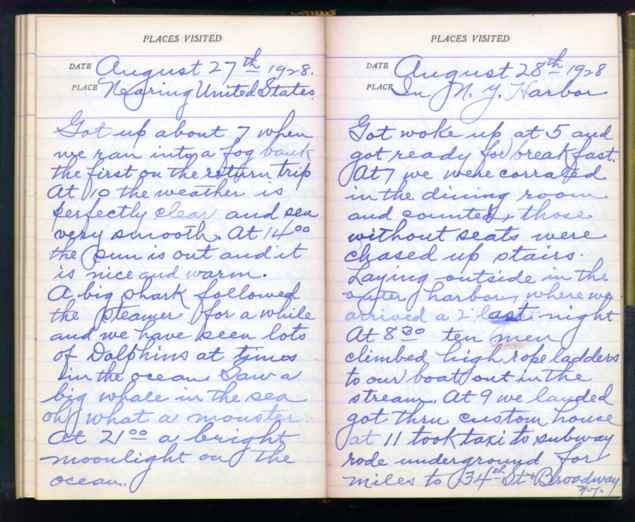 PLACES VISITED
DATE August 27th 1928.
PLACE Nearing United States.
Got up about 7 when
we ran into a fog bank
the first on the return trip
At 10 the weather is
perfectly clear and sea
very smooth. At 14 00
the sun is out and it
is nice and warm.
A big shark followed
the steamer for a while
and we have seen lots
of Dolphins at times
in the ocean. Saw a
big whale in the sea
oh, what a monster.
At 21 00 a bright
moonlight on the
ocean.
PLACES VISITED
DATE August 28th 1928
PLACE In N. Y. Harbor
Got woke up at 5 and
got ready for breakfast.
At 7 we were corraled
in the dining room
and counted, those
without seats were
chased up stairs.
Laying outside in the
outer harbor, where we
arrived a 2 last night
At 8 30 ten men
climbed high rope ladders
to our boat out in the
stream. At 9 we landed
got thru custom house
at 11 took taxi to subway
rode underground for
miles to 34th St. & Broadway
N.Y.